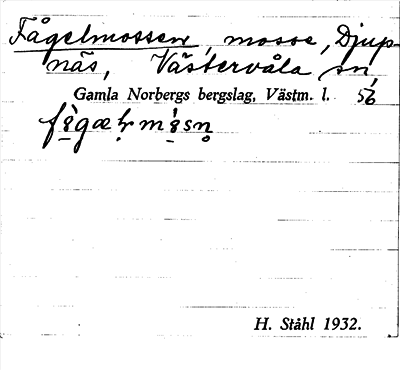 Fågelmossen, mosse, Djup-
näs, Västervåla sn,
Gamla Norbergs bergslag, Västm. l. 5/6
H. Ståhl 1932.